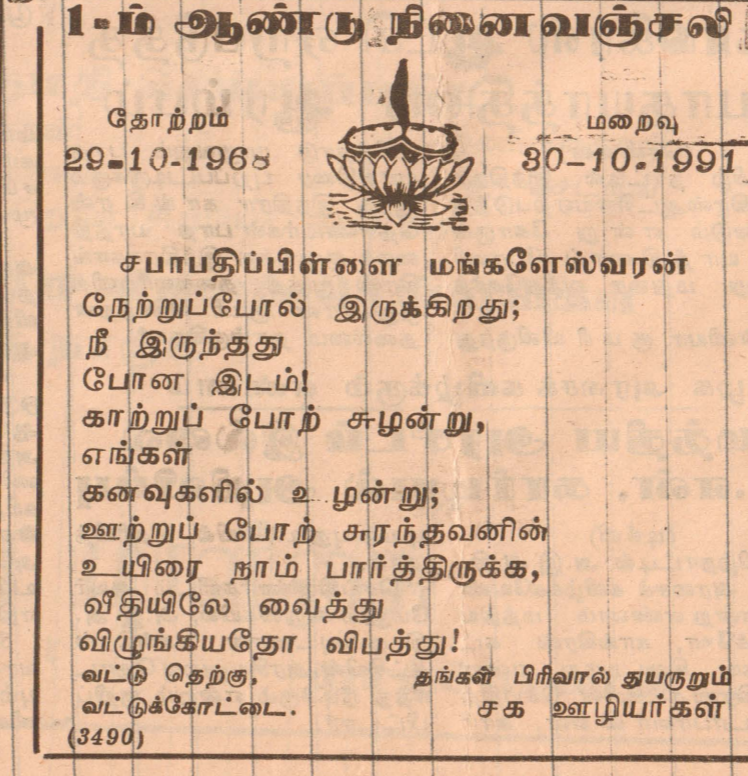 1-ம் ஆண்டு நினைவஞ்சலி
தோற்றம்
29-10-1968
மறைவு
30-10-1991
சபாபதிப்பிள்ளை மங்களேஸ்வரன்
நேற்றுப்போல் இருக்கிறது;
நீ இருந்தது
போன இடம்!
காற்றுப் போற் சுழன்று,
எங்கள்
கனவுகளில் உழன்று;
ஊற்றுப் போற் சுரந்தவனின்
உயிரை நாம் பார்த்திருக்க,
வீதியிலே வைத்து
விழுங்கியதோ விபத்து!
வட்டு தெற்கு,
வட்டுக்கோட்டை.
(3490)
தங்கள் பிரிவால் துயருறும்
சக ஊழியர்கள்